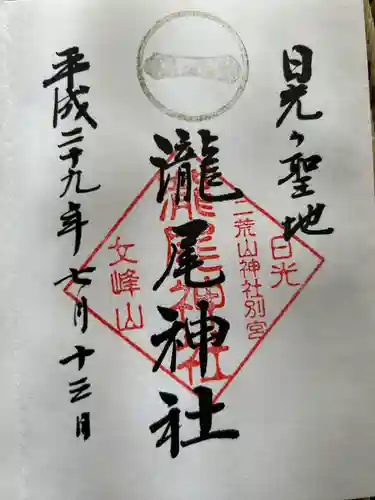 日光の聖地
瀧尾神社
平成二十九年七月十三日
日光
二荒山神社別宮
瀧尾神社
女峰山